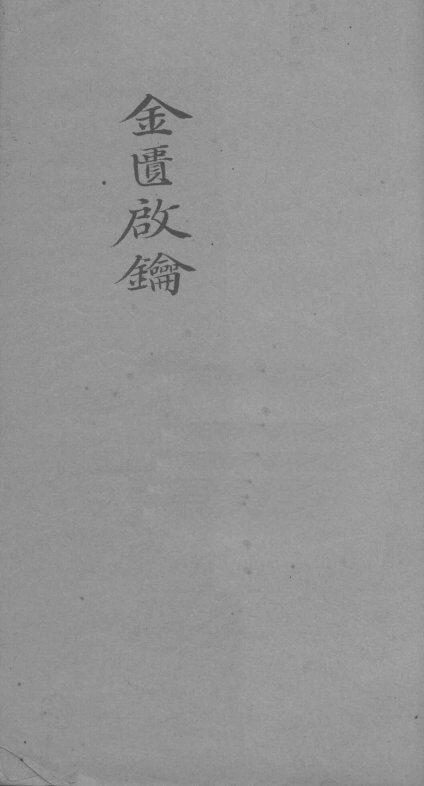 金匱啟鑰